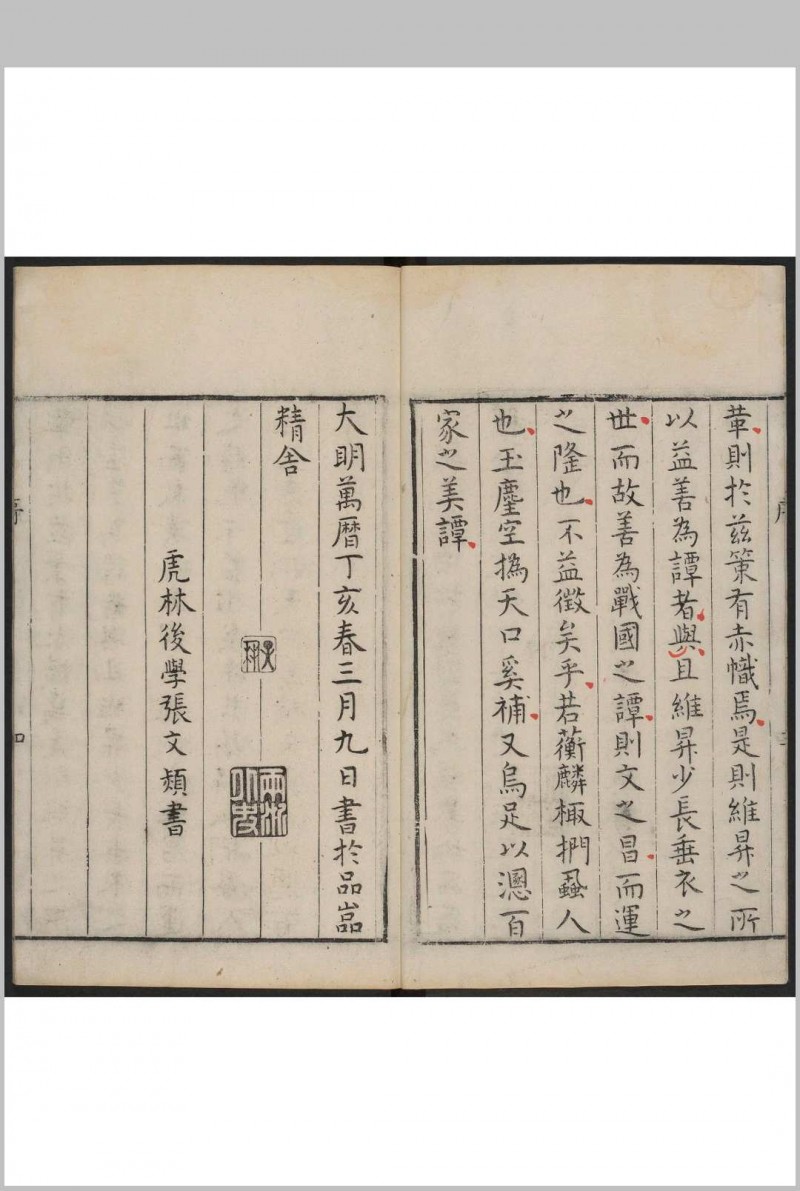 革則於茲策有赤幟焉是則維昇之所
以益善為譚者與且維昇少長垂衣之
世而故善為戰國之譚則文之昌而運
之隆也不益徵矣乎若蘅麟椒捫蝨人
也玉麈空撝天口奚補又烏足以溷百
家之美譚
大明萬曆丁亥春三月九日書於品嵓
精舍
虎林後學張文頪書
序